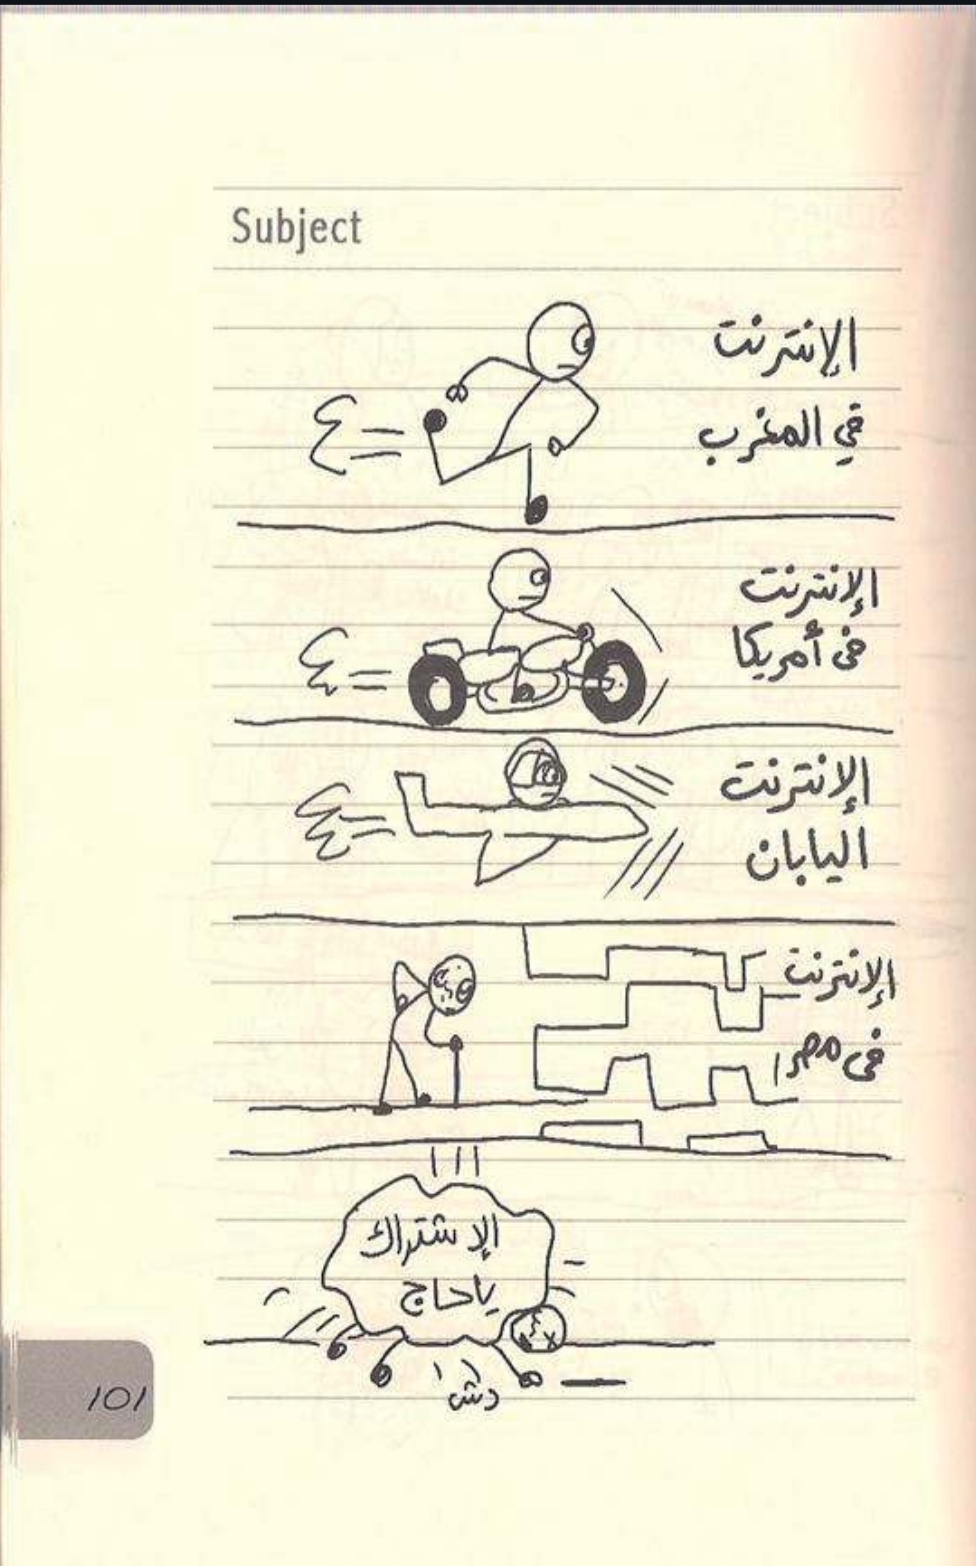 Subject
الإنترنت
في المغرب
الإنترنت
فى أمريكا
الإنترنت
اليابان
الإنترنت
فى مصر
الإشتراك
ياحاج
دش
101